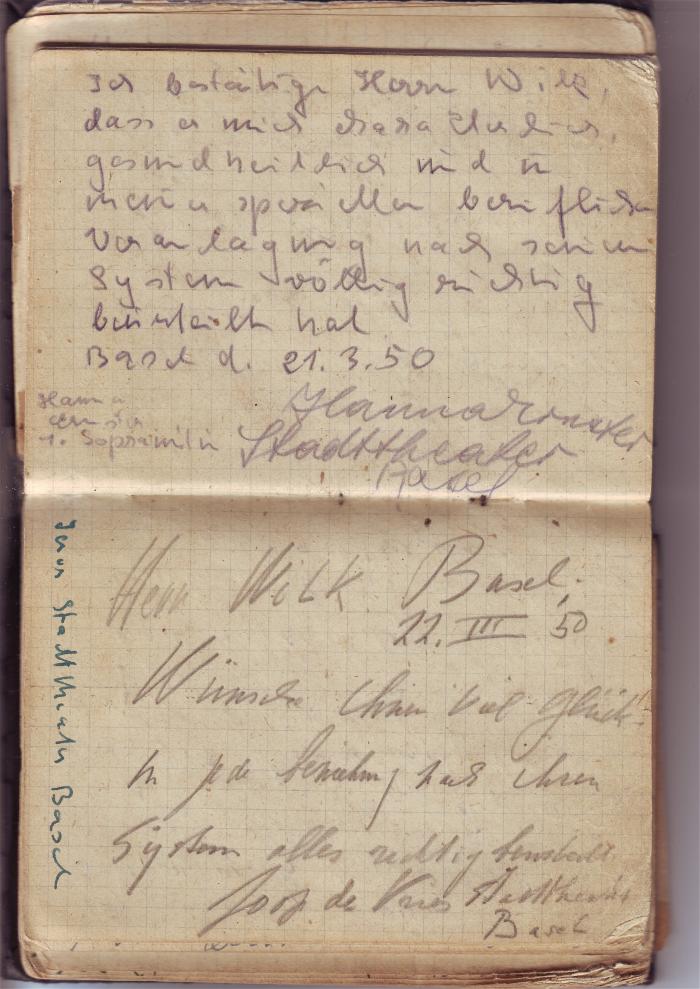 Ich bestätige Herrn Wilk,
dass er mich charakterlich,
gesundheitlich und in
meiner speziellen beruflichen
Veranlagung nach seinem
System völlig richtig
beurteilt hat
Basel d. 21.3.50
Hanna
1. Sopranistin
Hanna
Stadttheater
Basel
Herr Wilk Basel,
22. III 50
Wünsche Ihnen viel Glück
In jede beziehung nach ihren
System alles richtig
Joop de Vries Stadttheater
Basel
Stadttheater Basel